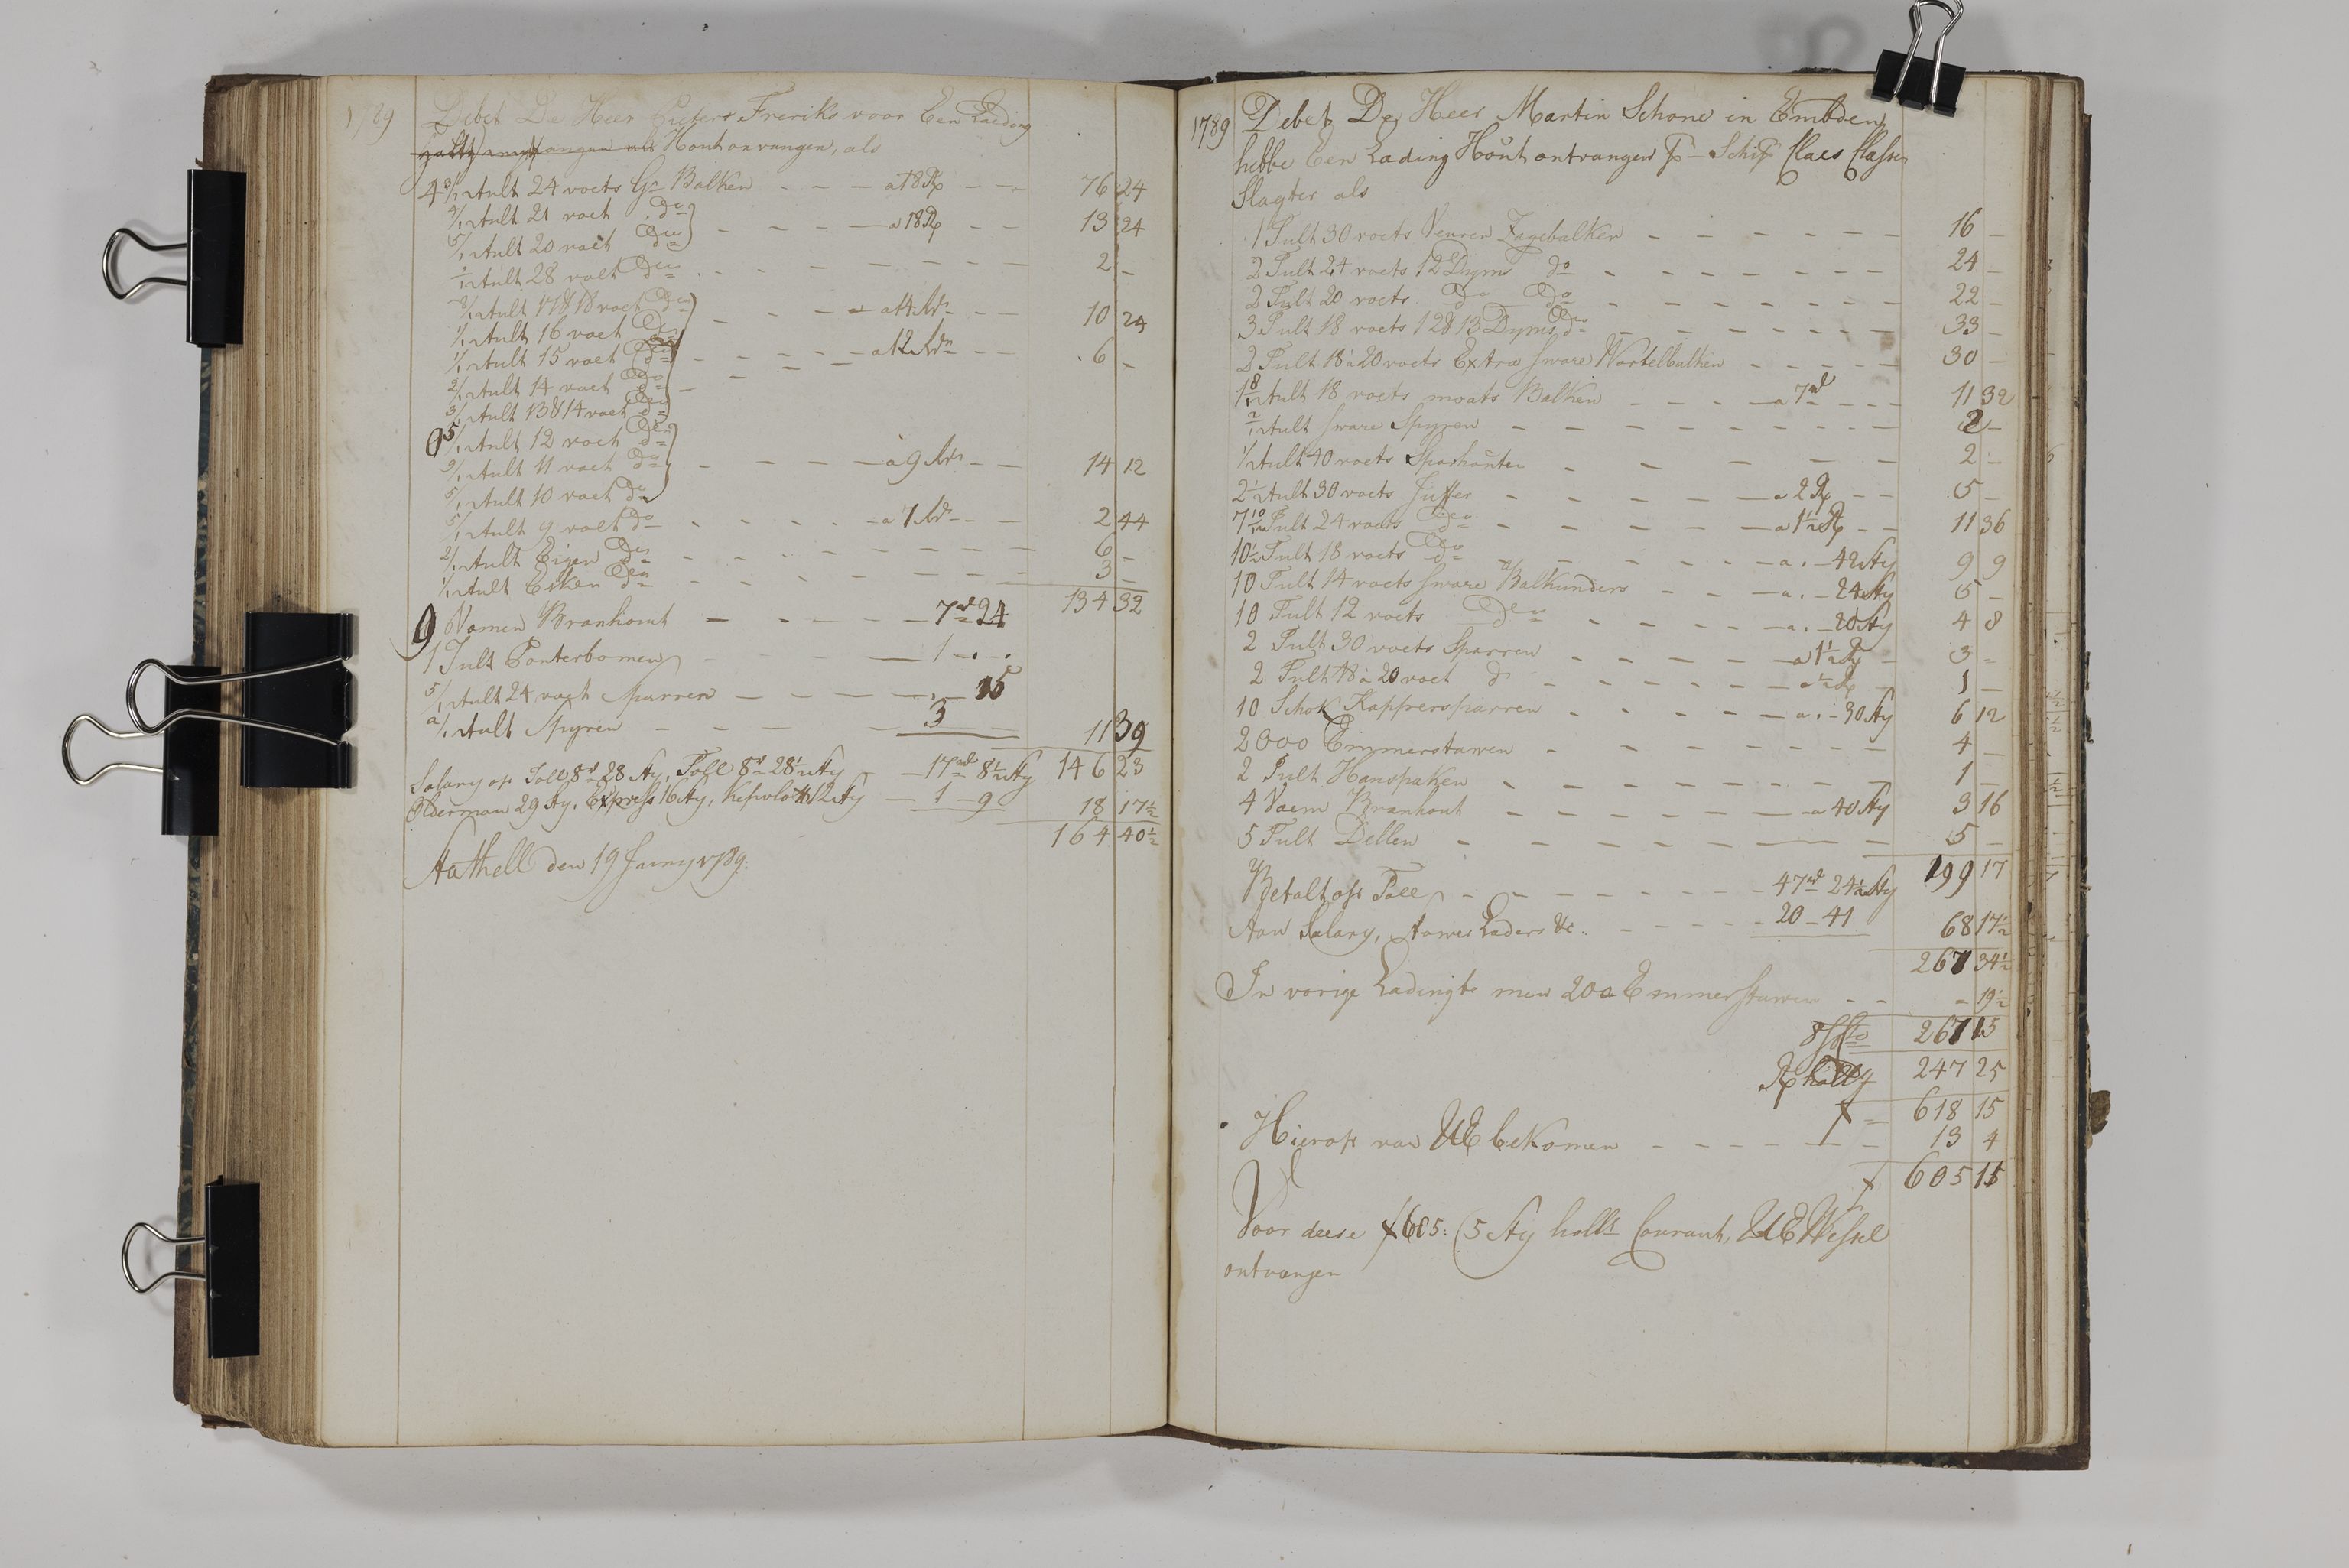 1789 Debet De Heer Pieters Freriks voor Een Lading
Hout onvangen, als
4 3/12 Tult 24 voets Gr. Balken - - - a 18 R - - 76 24
4/12 Tult 21 voet do
5/12 Tult 20 voet do - - - - a 18 R - - 13 24
1/12 Tult 28 voet do - - - - - - - 2 -
Tult 17 & 18 voet do - - - a 14 Rdr - - 10 24
1/12 Tult 16 voet do
1/12 Tult 15 voet do - - - - a 12 Rdr - - 6 -
2/12 Tult 14 voet do
3/12 Tult 13 & 14 voet do
5/12 Tult 12 voet do
9/12 Tult 11 voet do - - - - a 9 Rdr - - 14 12
5/12 Tult 10 voet do
5/12 Tult 9 voet do - - - - a 7 Rdr - - 2 44
2/12 Tult Eigen do - - - - - - - 6 -
1/12 Tult Esken do - - - - - - - 3 -
134 32
9 Vamen Branhout - - - - 7 rd 24
1 Tult Ponterbomen - - - 1 - . - .
5/12 Tult 24 voet Sparren - - - - . - 15
Tult Spyren - - - - 3 - 11 39
Salary op Toll 8 rd 28 Sty, Toll 8 rd 28½ Sty - 17 rd 8½ Sty 146 23
Olderman 29 Sty, Express 16 Sty, 12 Sty - 1 - 9 18 17½
164 40½
Hathell den 19 Juny 1789.
1789 Debet De Heer Martin Schone in Embden
hebbe Een Lading Hout ontvangen P Schip Claes Classen
Slagter als
1 Tult 30 voets Veuren Zagebalken - - - - - - 16 -
2 Tult 24 voets 12 Dyms do - - - - - - - 24 -
2 Tult 20 voets do do - - - - - - - 22 -
3 Tult 18 voets 12 & 13 Dyms do - - - - - - 33 -
2 Tult 18 a 20 voets Extra sware Wortelbalken - - - - 30 -
1 8/12 Tult 18 voets moats Balken - - - a 7 rd - - - 11 32
Tult sware Spyren - - - - - - - 2 -
½ Tult 40 voets Sparhouten - - - - - - 2 -
2½ Tult 30 voets Juffers - - - - - a 2 R - - 5 -
7 10/12 Tult 24 voets do - - - - - a 1½ R - - 11 36
10½ Tult 18 voets do - - - - - a . - 42 Sty 9 9
10 Tult 14 voets sware Balkunders - - - a . - 24 Sty 5 -
10 Tult 12 voets do - - - - a . - 20 Sty 4 8
2 Tult 30 voets Sparren - - - - a 1½ R - 3 -
2 Tult 18 a 20 voet do - - - - - a ½ R - 1 -
10 Schok Kappersparren - - - - - a . - 30 Sty 6 12
2000 Emmerstawen - - - - - - - 4 -
2 Tult Hanspaken - - - - - - - 1 -
4 Vaem Branhout - - - - - - a 40 Sty 3 16
5 Tult Dellen - - - - - - - 5 -
199 17
Betalt op Toll - - - - - - 47 rd 24½ Sty
Aan Salary, Laders &c. - - - - 20 - 41 68 17½
267 34½
In vorige Ladingte men 200 Emmerstawen - - - 19½
267 15
R holl 247 25
f 618 15
Hierop van UE bekomen - - - - - 13 4
f 605 15
Voor deese f 605: 15 Sty holls Courant, UE Wessel
ontvangen